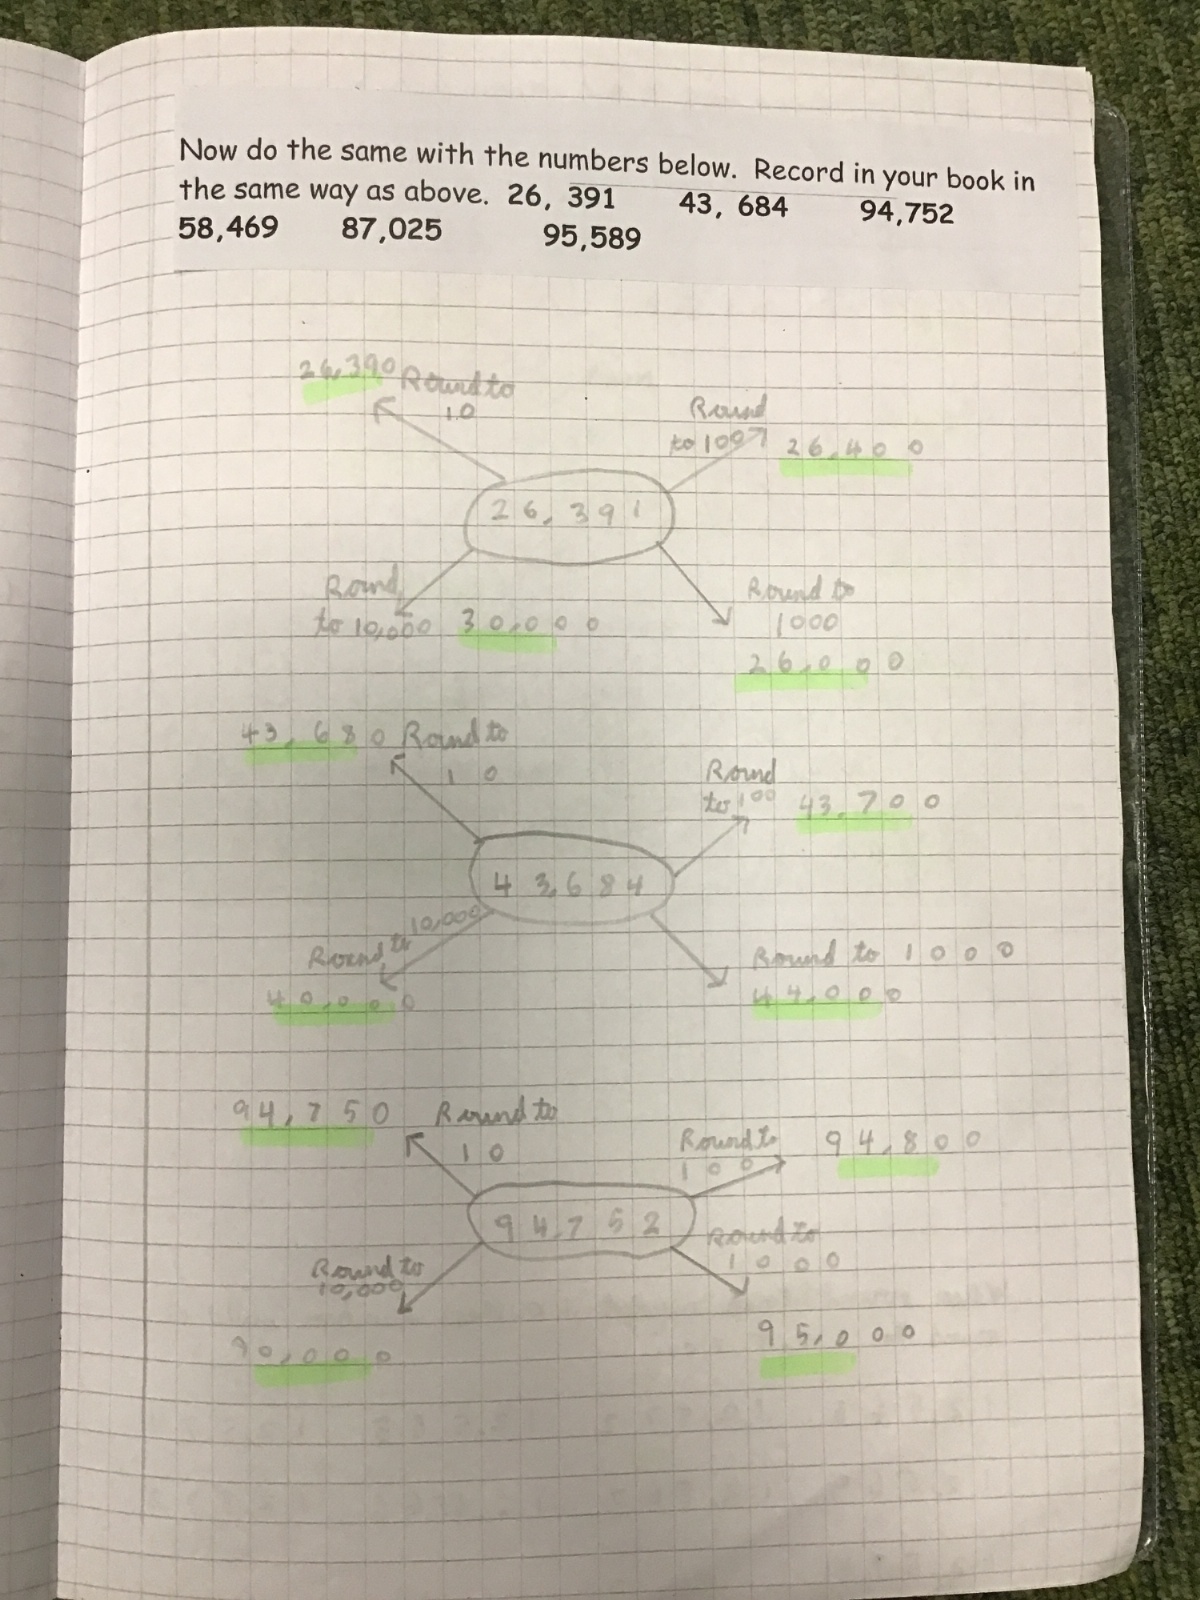 Now do the same with the numbers below. Record in your book in
the same way as above. 26, 391 43, 684 94,752
58,469 87,025 95,589
26,390 Round to
10
Round
to 100 26,400
26,391
Round
to 10,000 30,000
Round to
1000
26,000
43,680 Round to
10
Round
to 100 43,700
43,684
Round to 10,000
40,000
Round to 1000
44,000
94,750 Round to
10
Round to
100
94,800
94,752
Round to
10,000
90,000
Round to
1000
95,000